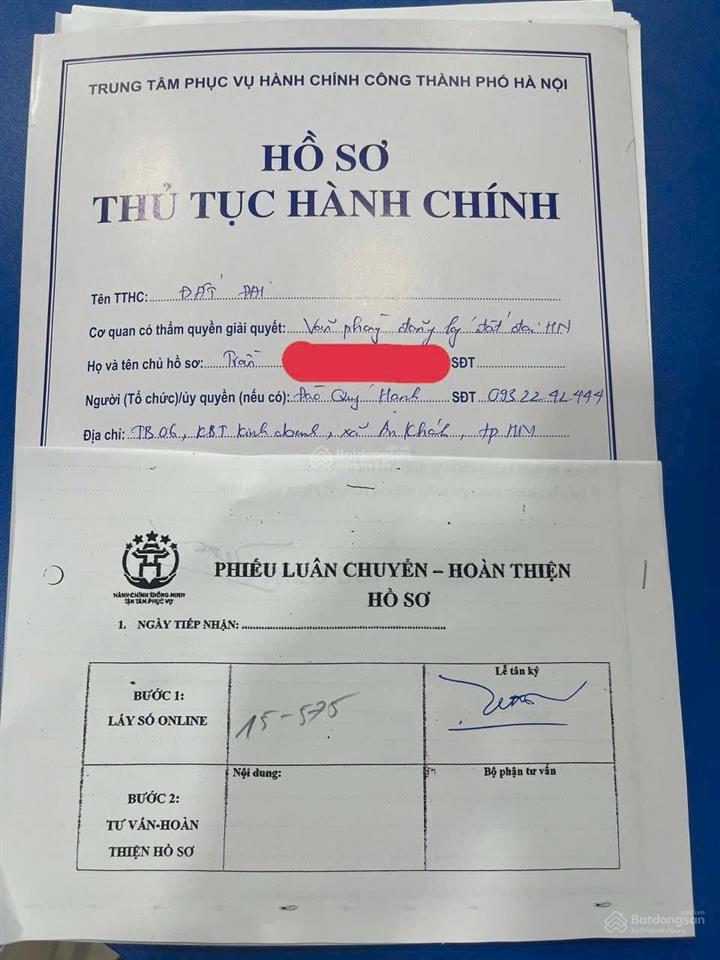 TRUNG TÂM PHỤC VỤ HÀNH CHÍNH CÔNG THÀNH PHỐ HÀ NỘI
HỒ SƠ
THỦ TỤC HÀNH CHÍNH
Tên TTHC: ĐẤT ĐAI
Cơ quan có thẩm quyền giải quyết: Văn phòng đăng ký đất đai HN
Họ và tên chủ hồ sơ: Trần SĐT
Người (Tổ chức)/ủy quyền (nếu có): Đào Quý Hanh SĐT 093 22 42 444
Địa chỉ: TB.06, KBT kinh doanh, xã An Khánh, tp HN
HÀNH CHÍNH THÔNG MINH
TẬN TÂM PHỤC VỤ
PHIẾU LUÂN CHUYỂN – HOÀN THIỆN
HỒ SƠ
1. NGÀY TIẾP NHẬN:
BƯỚC 1:
LẤY SỐ ONLINE
15-575
Lễ tân ký
BƯỚC 2:
TƯ VẤN-HOÀN
THIỆN HỒ SƠ
Nội dung:
Bộ phận tư vấn
Batdongsan
by PropertyGuru